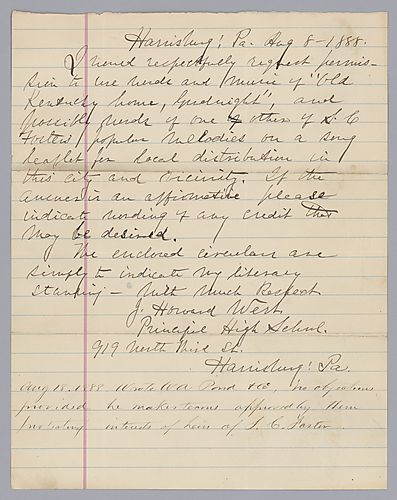 Harrisburg, Pa. Aug 8-1888.
I would respectfully request permis-
sion to use words and music of "Old
Kentucky home, Goodnight", and
possibly words of one or other of S. C
Foster's popular melodies on a song
leaflet for local distribution in
this city and vicinity. If the
answer is an affirmative please
indicate wording of any credit that
may be desired.
The enclosed circulars are
simply to indicate my literary
standing - With much Respect
J. Howard Wert,
Principal High School.
919 North Third St.
Harrisburg, Pa.
Aug 18. 1888 Wrote Wm Pond &Co, no objections
provided he makes terms approved by them
protecting interests of heirs of S. C. Foster.